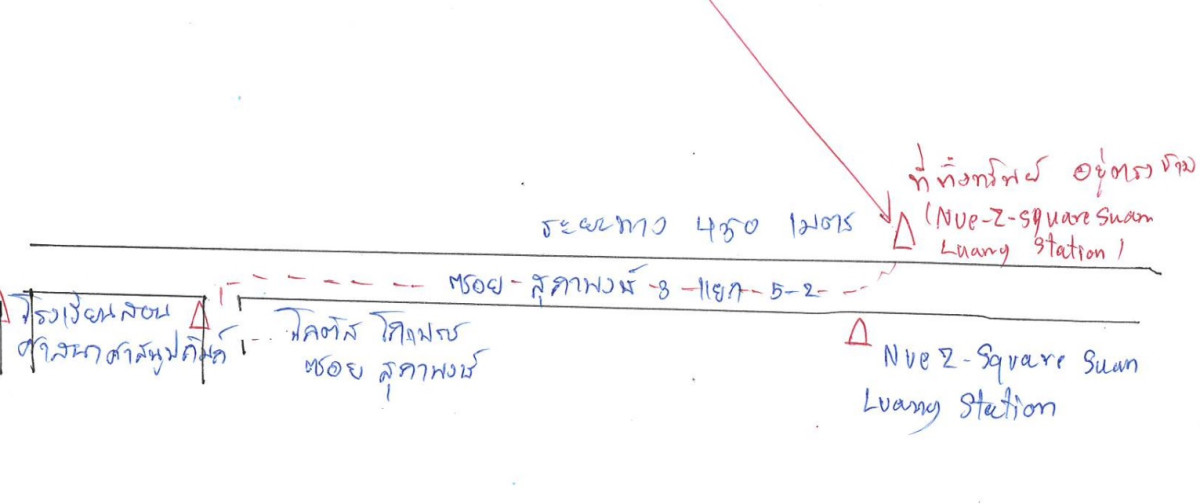 ที่ตั้งทรัพย์ อยู่ตรงข้าม
(Nue-Z-Square Suan
Luang Station)
ระยะทาง 450 เมตร
ซอย-สุภาพงษ์-3-แยก-5-2-
โรงเรียนสอน
ศาสนาศาสนูปถัมภ์
โลตัส โกเฟรช
ซอย สุภาพงษ์
Nue Z-Square Suan
Luang Station